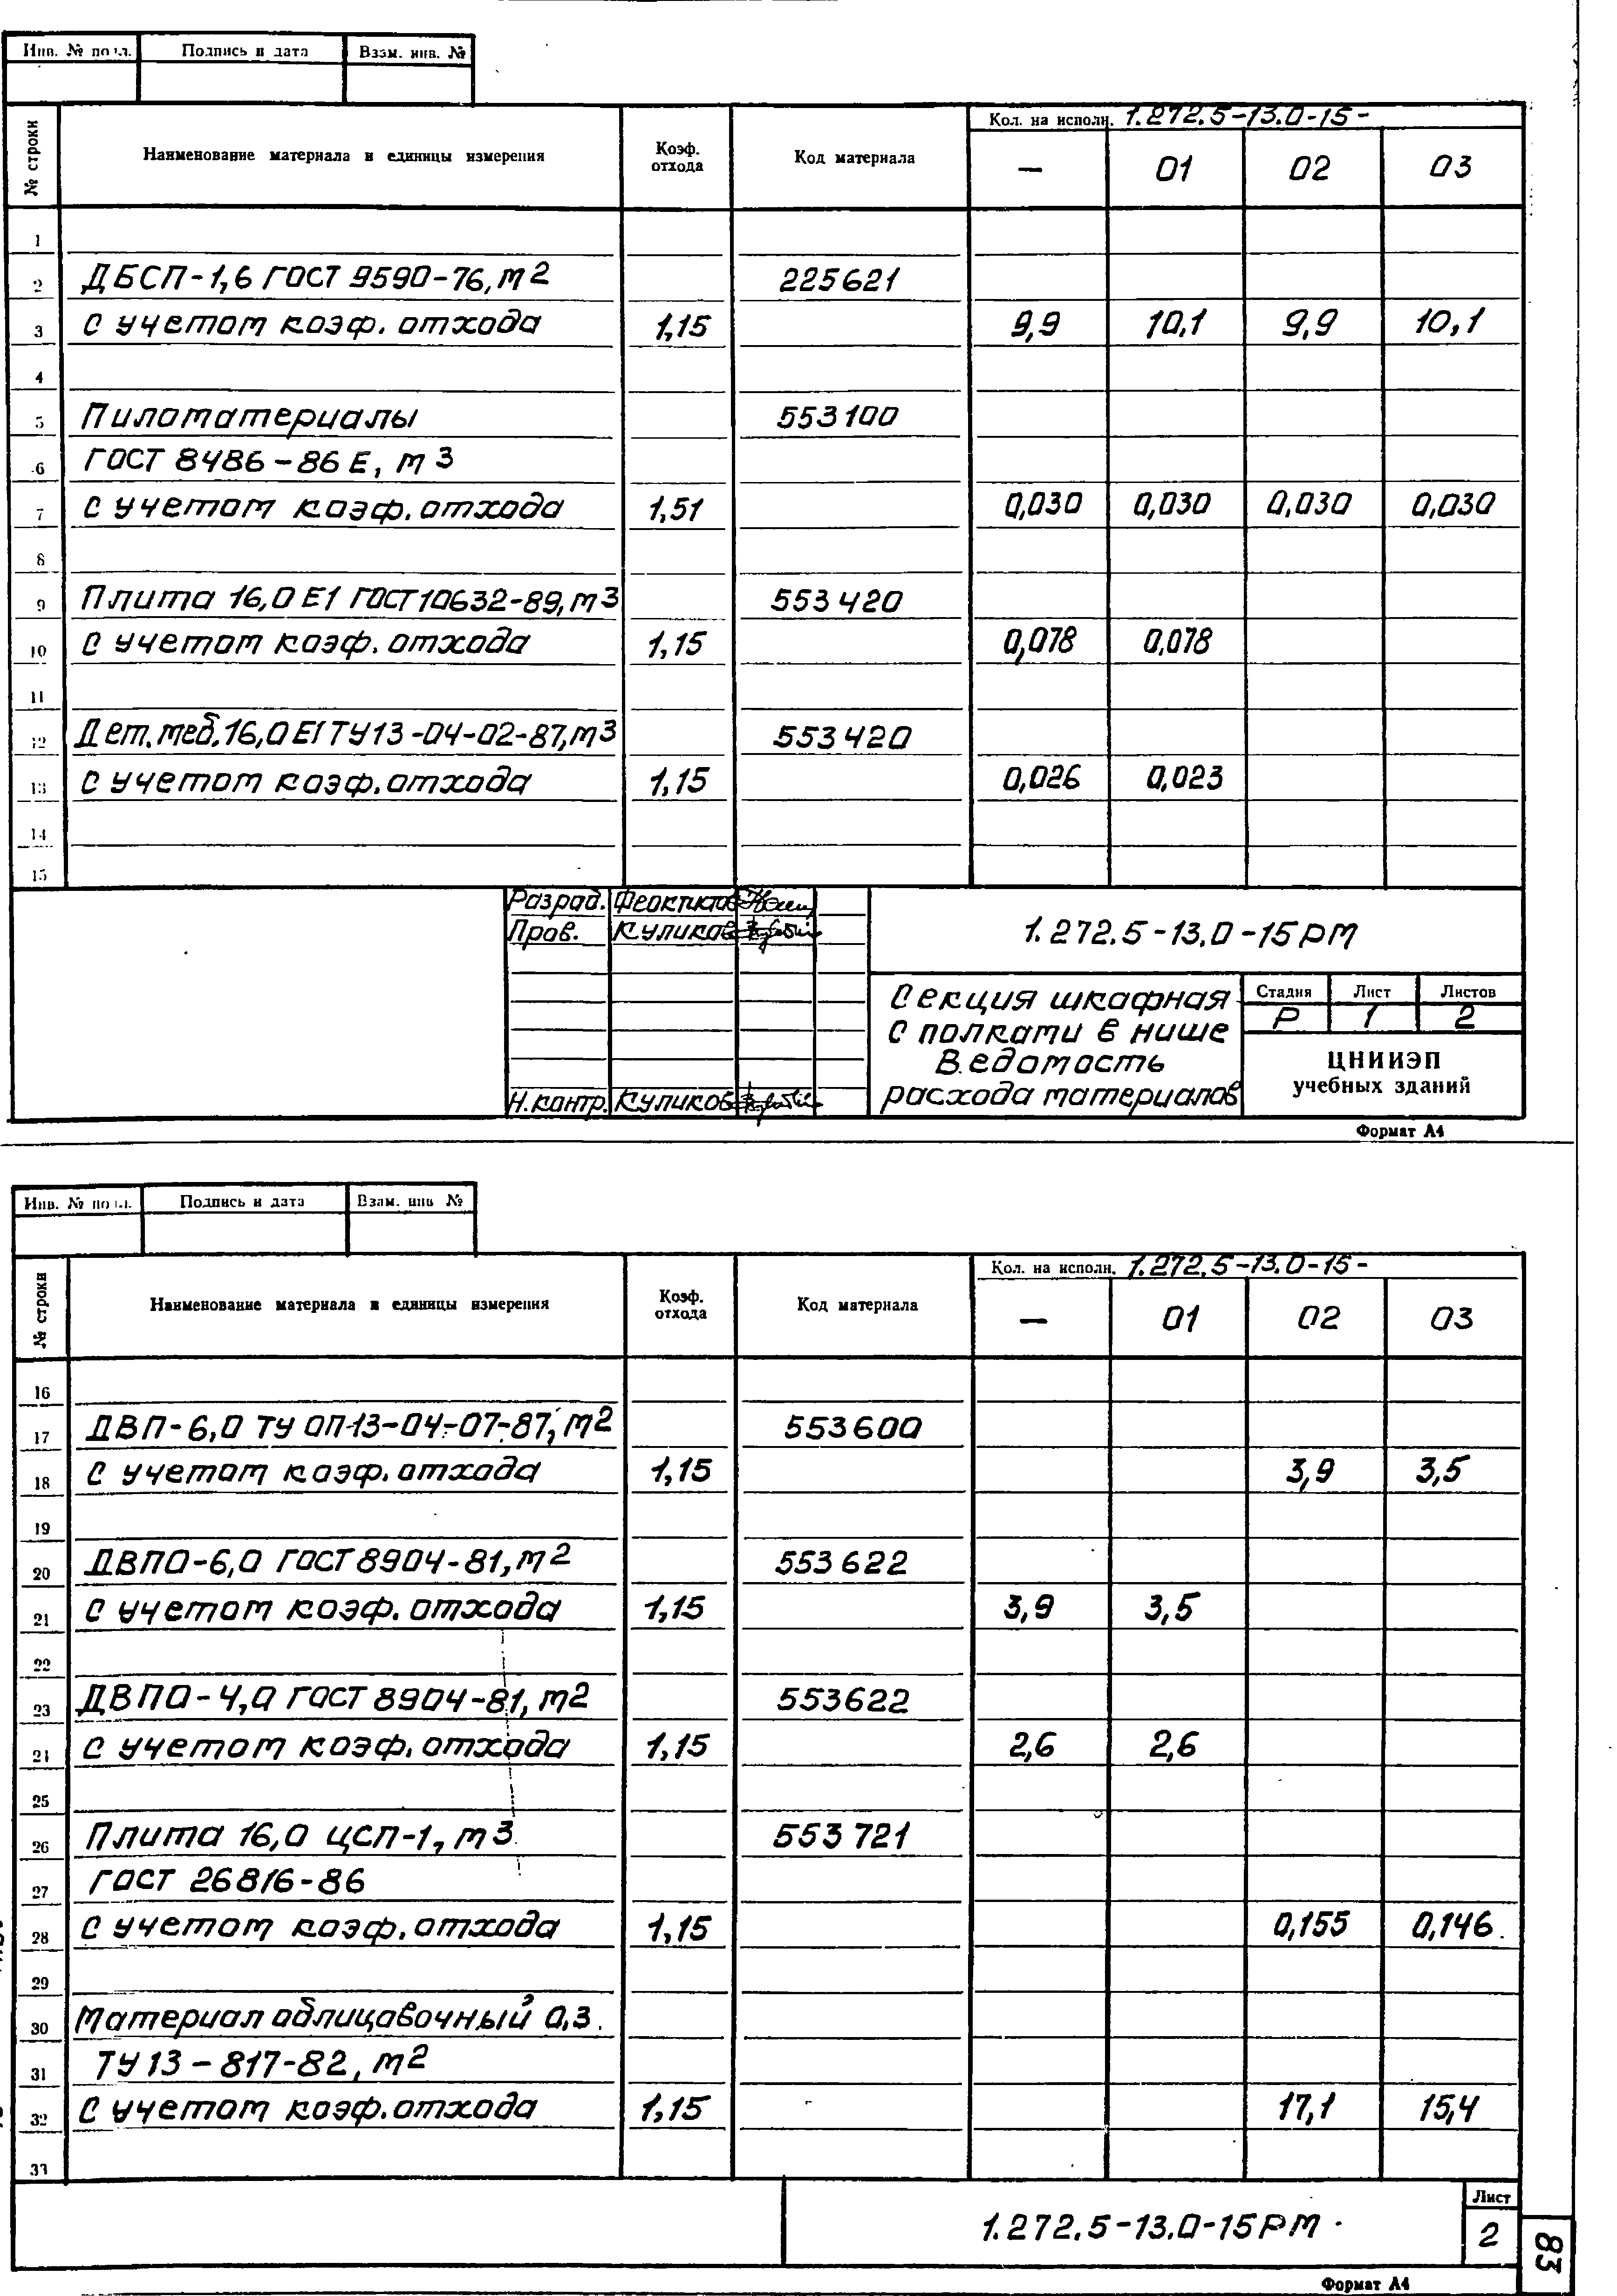 Инв. № подл. Подпись и дата Взам. инв. №
№ строки Наименование материала и единицы измерения Коэф. отхода Код материала Кол. на исполн. 1.272.5-13.0-15-
— 01 02 03
1
2 ДБСП-1,6 ГОСТ 9590-76, м2 225621
3 С учетом коэф. отхода 1,15 9,9 10,1 9,9 10,1
4
5 Пиломатериалы 553100
6 ГОСТ 8486-86 Е, м3
7 С учетом коэф. отхода 1,51 0,030 0,030 0,030 0,030
8
9 Плита 16,0 Е1 ГОСТ 10632-89, м3 553420
10 С учетом коэф. отхода 1,15 0,078 0,078
11
12 Дет. меб. 16,0 Е1 ТУ 13-04-02-87, м3 553420
13 С учетом коэф. отхода 1,15 0,026 0,023
14
15
Разраб. Феоктистов
Пров. Куликов
Н. контр. Куликов
1.272.5-13.0-15РМ
Секция шкафная
с полками в нише
Ведомость
расхода материалов
Стадия Лист Листов
Р 1 2
ЦНИИЭП
учебных зданий
Формат А4
Инв. № подл. Подпись и дата Взам. инв №
№ строки Наименование материала и единицы измерения Коэф. отхода Код материала Кол. на исполн. 1.272.5-13.0-15-
— 01 02 03
16
17 ДВП-6,0 ТУ ОП-13-04-07-87, м2 553600
18 С учетом коэф. отхода 1,15 3,9 3,5
19
20 ДВПО-6,0 ГОСТ 8904-81, м2 553622
21 С учетом коэф. отхода 1,15 3,9 3,5
22
23 ДВПО-4,0 ГОСТ 8904-81, м2 553622
24 С учетом коэф. отхода 1,15 2,6 2,6
25
26 Плита 16,0 ЦСП-1, м3 553721
27 ГОСТ 26816-86
28 С учетом коэф. отхода 1,15 0,155 0,146
29
30 Материал облицовочный 0,3
31 ТУ 13-817-82, м2
32 С учетом коэф. отхода 1,15 17,1 15,4
33
1.272.5-13.0-15РМ
Лист
2
83
Формат А4